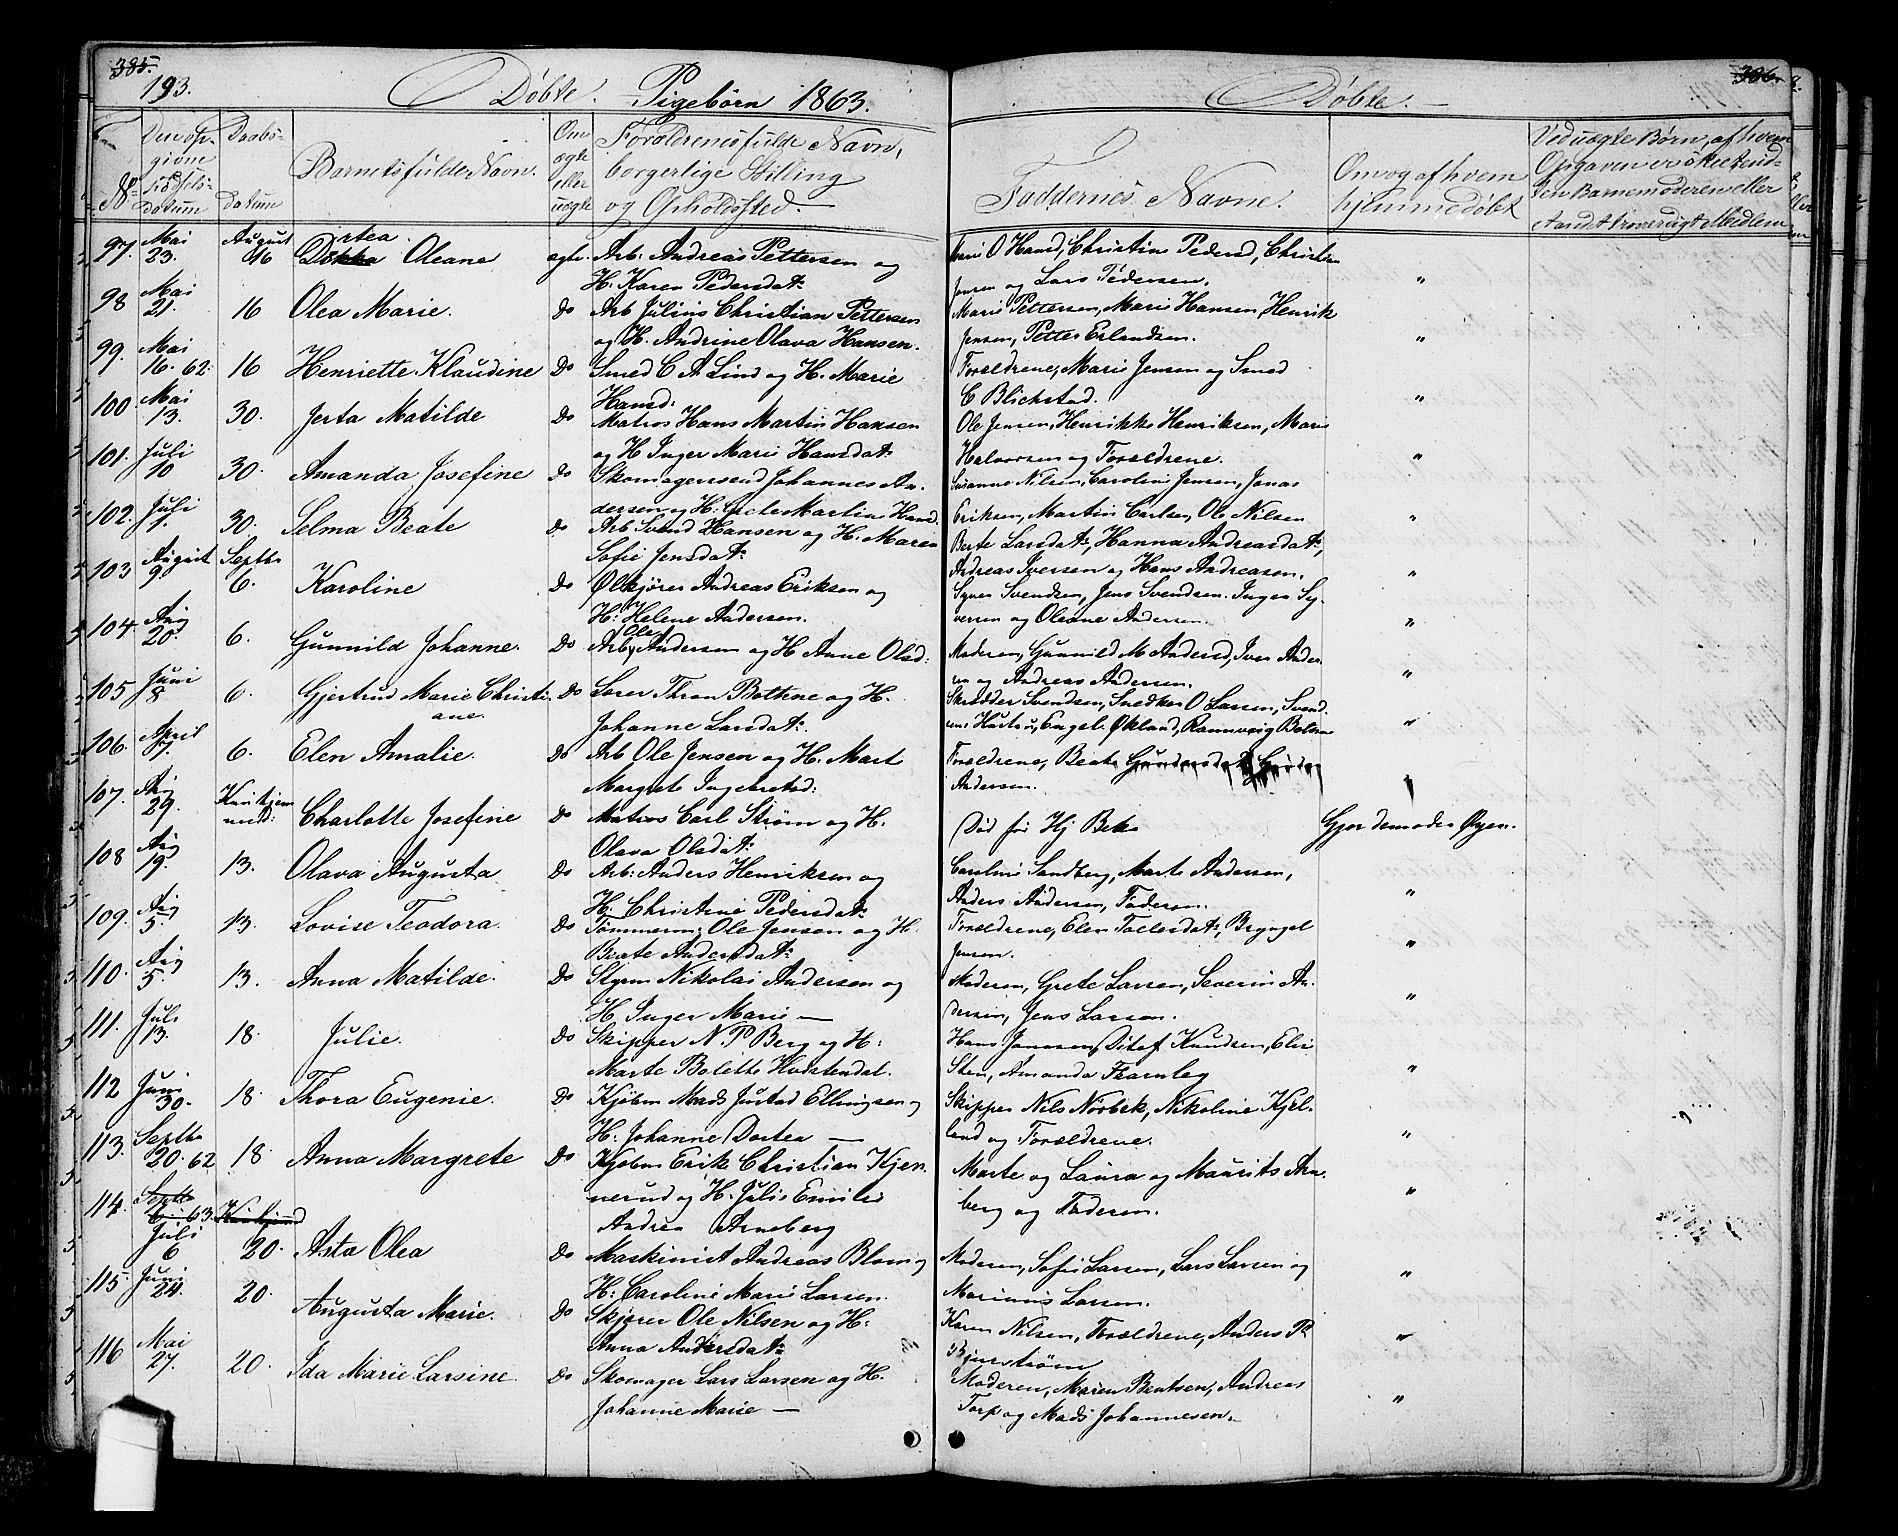 385. 193. Döbte. Pigebörn 1863.
Døbte. 386.
No
Den opgivne Födselsdatum
Daabsdatum
Barnets fulde Navn.
Om ægte eller uægte
Forældrenes fulde Navn, borgerlige Stilling og Opholdssted.
Faddernes Navne.
Om og af hvem hjemmedøbt
Ved uægte Børn, af hvem Opgaven er skeet
den Barnemoderen eller
Andet troværdigt Medlem
97. Mai 23. August 16 Dortea Oleane ægte. Arb: Andreas Pettersen og
H: Karen Pedersdat:
Marie O Hansd, Christine Pedersd, Christian
Jensen og Lars Pedersen. "
98 Mai 21. 16 Olea Marie. Do Arb Julius Christian Pettersen
og H. Andrine Olava Hansen.
Marie Pettersen, Marie Hansen, Henrik
Jensen, Petter Erlandsen. "
99. Mai 16. 62. 16 Henriette Klaudine Do Smed C A Lind og H. Marie
Hansd:
Forældrene, Marie Jensen og Smed
C Blichstad. "
100. Mai 13. 30. Jerta Matilde Do Matros Hans Martin Hansen
og H Inger Marie Hansdat:
Ole Jensen, Henrikke Henriksen, Marie
Halvorsen og Forældrene. "
101. Juli 10 30. Amanda Josefine Do Skomagersvend Johannes An-
dersen og H: Grete Martin Hansd.
Susanne Nilsen, Caroline Jensen, Jonas
Eriksen, Martin Carlsen, Ole Nilsen "
102. Juli 1. 30. Selma Beate Do Arb Svend Hansen og H. Maren
Sofie Jensdat:
Berte Larsdat:, Hanna Andreasdat:,
Andreas Iversen og Hans Andreasen. "
103 August 9. Septbr 6. Karoline Do Ølkjører Andreas Eriksen og
H: Helene Andersen.
Syver Svendsen, Jens Svendsen. Inger Sy-
versen og Oleane Andersen. "
104. Aug 20. 6. Gunnild Johanne. Do Arb Ole Andersen og H Anne Olsd:
Moderen, Gunnild M Andersd, Iver Ander-
sen og Andreas Andersen. "
105 Juni 8 6. Gjertrud Marie Christi-
ane. Do Thron Bottene og H.
Johanne Larsdat:
Skrædder Svendsen, Snedker O Larsen, Svend-
sens Hustru, Engel. Økland, Rannveig "
106. April 17. 6. Elen Amalie. Do Arb Ole Jensen og H. Mart
Margrete Ingebretsd:
Forældrene, Beate Gundersdat
Andersen. "
107. Aug 29. Kun hjem-
med: Charlotte Josefine Do Matros Carl Strøm og H.
Olava Olsdat:
Død før Hj Bek Gjordemoder
108 Aug 19. 13. Olava Augusta Do Arb: Anders Henriksen og
H: Christine Pedersdat:
Caroline Sandberg, Marte Andersen,
Anders Andersen, Faderen. "
109. Aug 5. 13. Lovise Teodora. Do Tømmerm: Ole Jensen og H.
Beate Andersdat:
Forældrene, Elen Tollefsdat:, Bryngel
Jensen. "
110. Aug 5. 13. Anna Matilde. Do Styrm Nikolai Andersen og
H. Inger Marie —
Moderen, Grete Larsen, Severin An-
dersen, Jens Larsen. "
111. Juli 13. 18. Julie. Do Skipper N. P Berg og H:
Marte Bolette Hvistendal.
Hans Jonassen, Ditef Knudsen, Elise
Sten, Amanda Fearnley "
112 Juni 30. 18. Thora Eugenie. Do Kjöbm Mads Justad Ellingsen og
H: Johanne Dortea —
Skipper Nils Norbek, Nikoline Kjel-
land og Forældrene. "
113. Septbr 20. 62 18. Anna Margrete Do Kjöbm Erik Christian Kjen-
nerud og H. Julie Emilie
Andrea Arneberg
Marte og Laura og Maurits Arn-
berg og Faderen. "
114. Septbr 6. 63. Kun hjemd
Juli 6 20. Asta Olea Do Maskinist Andreas Blom og
H: Caroline Marie Larsen.
Moderen, Sofie Larsen, Lars Larsen og
Marinius Larsen. "
115. Juni 24. 20. Augusta Marie. Do Skjører Ole Nilsen og H:
Anna Andersdat:
Karen Nilsen, Forældrene, Anders P.
Bjurstrøm "
116 Mai 27. 20. Ida Marie Larsine. Do Skomager Lars Larsen og H.
Johanne Marie —
Moderen, Maren Bentsen, Andreas
Torp og Mads Johannesen. "